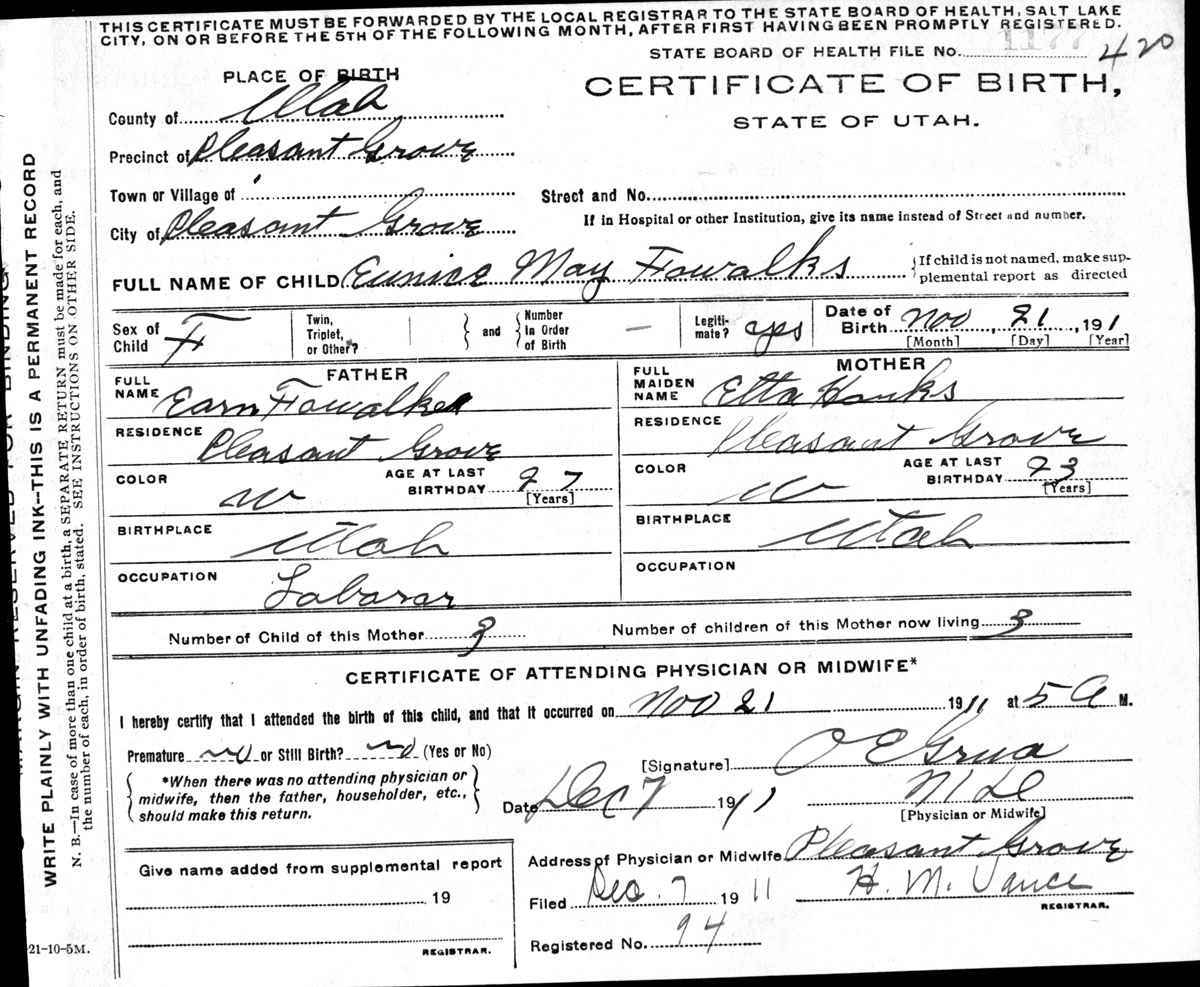 THIS CERTIFICATE MUST BE FORWARDED BY THE LOCAL REGISTRAR TO THE STATE BOARD OF HEALTH, SALT LAKE
CITY, ON OR BEFORE THE 5TH OF THE FOLLOWING MONTH, AFTER FIRST HAVING BEEN PROMPTLY REGISTERED.
STATE BOARD OF HEALTH FILE No. 1177 420
PLACE OF BIRTH
CERTIFICATE OF BIRTH,
STATE OF UTAH.
County of Utah
Precinct of Pleasant Grove
Town or Village of
Street and No.
City of Pleasant Grove
If in Hospital or other Institution, give its name instead of Street and number.
FULL NAME OF CHILD Eunice May Fowalks
{If child is not named, make sup-
plemental report as directed
Sex of Child F
Twin, Triplet, or Other?
and
Number in Order of Birth —
Legiti-mate? yes
Date of Birth Nov, 21, 1911
[Month] [Day] [Year]
FATHER
FULL NAME Earn Fowalks
RESIDENCE Pleasant Grove
COLOR W
AGE AT LAST BIRTHDAY 27
[Years]
BIRTHPLACE Utah
OCCUPATION Labarar
MOTHER
FULL MAIDEN NAME Etta Hanks
RESIDENCE Pleasant Grove
COLOR W
AGE AT LAST BIRTHDAY 23
[Years]
BIRTHPLACE Utah
OCCUPATION
Number of Child of this Mother 3
Number of children of this Mother now living 3
CERTIFICATE OF ATTENDING PHYSICIAN OR MIDWIFE*
I hereby certify that I attended the birth of this child, and that it occurred on Nov 21 1911 at 5 A M.
Premature no or Still Birth? no (Yes or No)
[Signature] O E Grua
*When there was no attending physician or
midwife, then the father, householder, etc.,
should make this return.
Date Dec 7 1911
M D
[Physician or Midwife]
Give name added from supplemental report
19
REGISTRAR.
Address of Physician or Midwife Pleasant Grove
Filed Dec. 7 1911
H. M. Vance
REGISTRAR.
Registered No. 94
WRITE PLAINLY WITH UNFADING INK--THIS IS A PERMANENT RECORD
N. B.—In case of more than one child at a birth, a SEPARATE RETURN must be made for each, and
the number of each, in order of birth, stated. SEE INSTRUCTIONS ON OTHER SIDE.
21-10-5M.